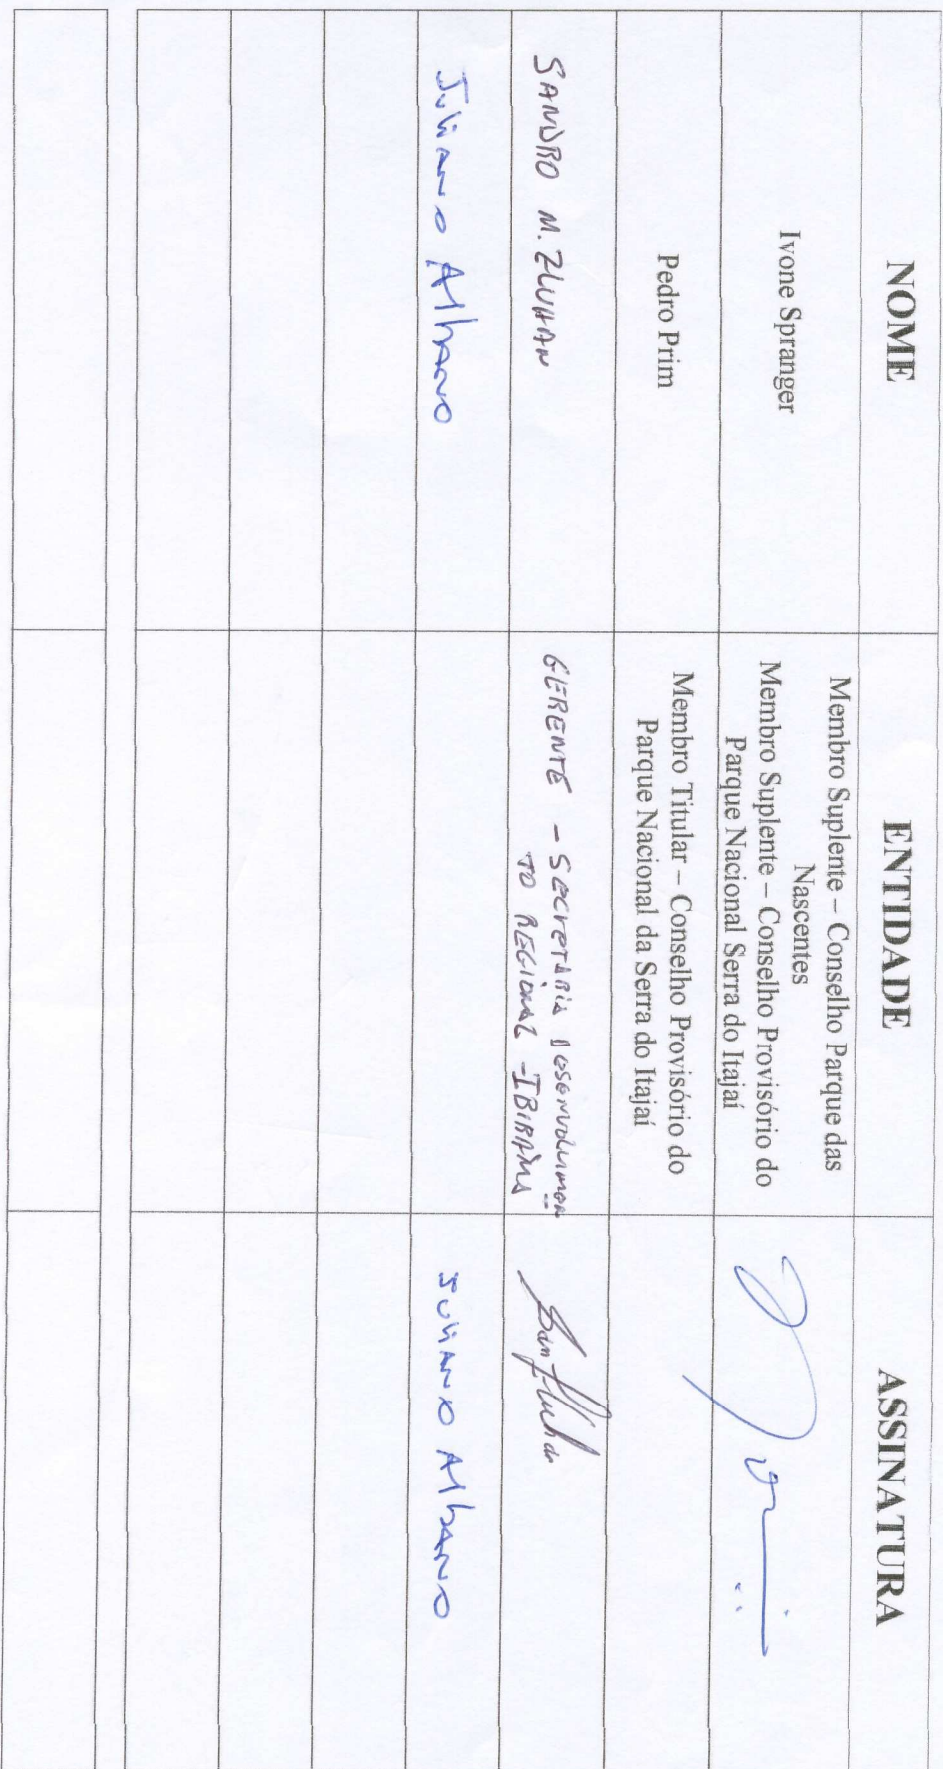 NOME ENTIDADE ASSINATURA
Ivone Spranger
Membro Suplente – Conselho Parque das
Nascentes
Membro Suplente – Conselho Provisório do
Parque Nacional Serra do Itajaí
Pedro Prim
Membro Titular – Conselho Provisório do
Parque Nacional da Serra do Itajaí
SANDRO M. ZLUHAN
GERENTE - SECRETARIA DESENVOLVIMEN
TO REGIONAL - IBIRAMA
JULIANO AlbANO
JULIANO AlbANO